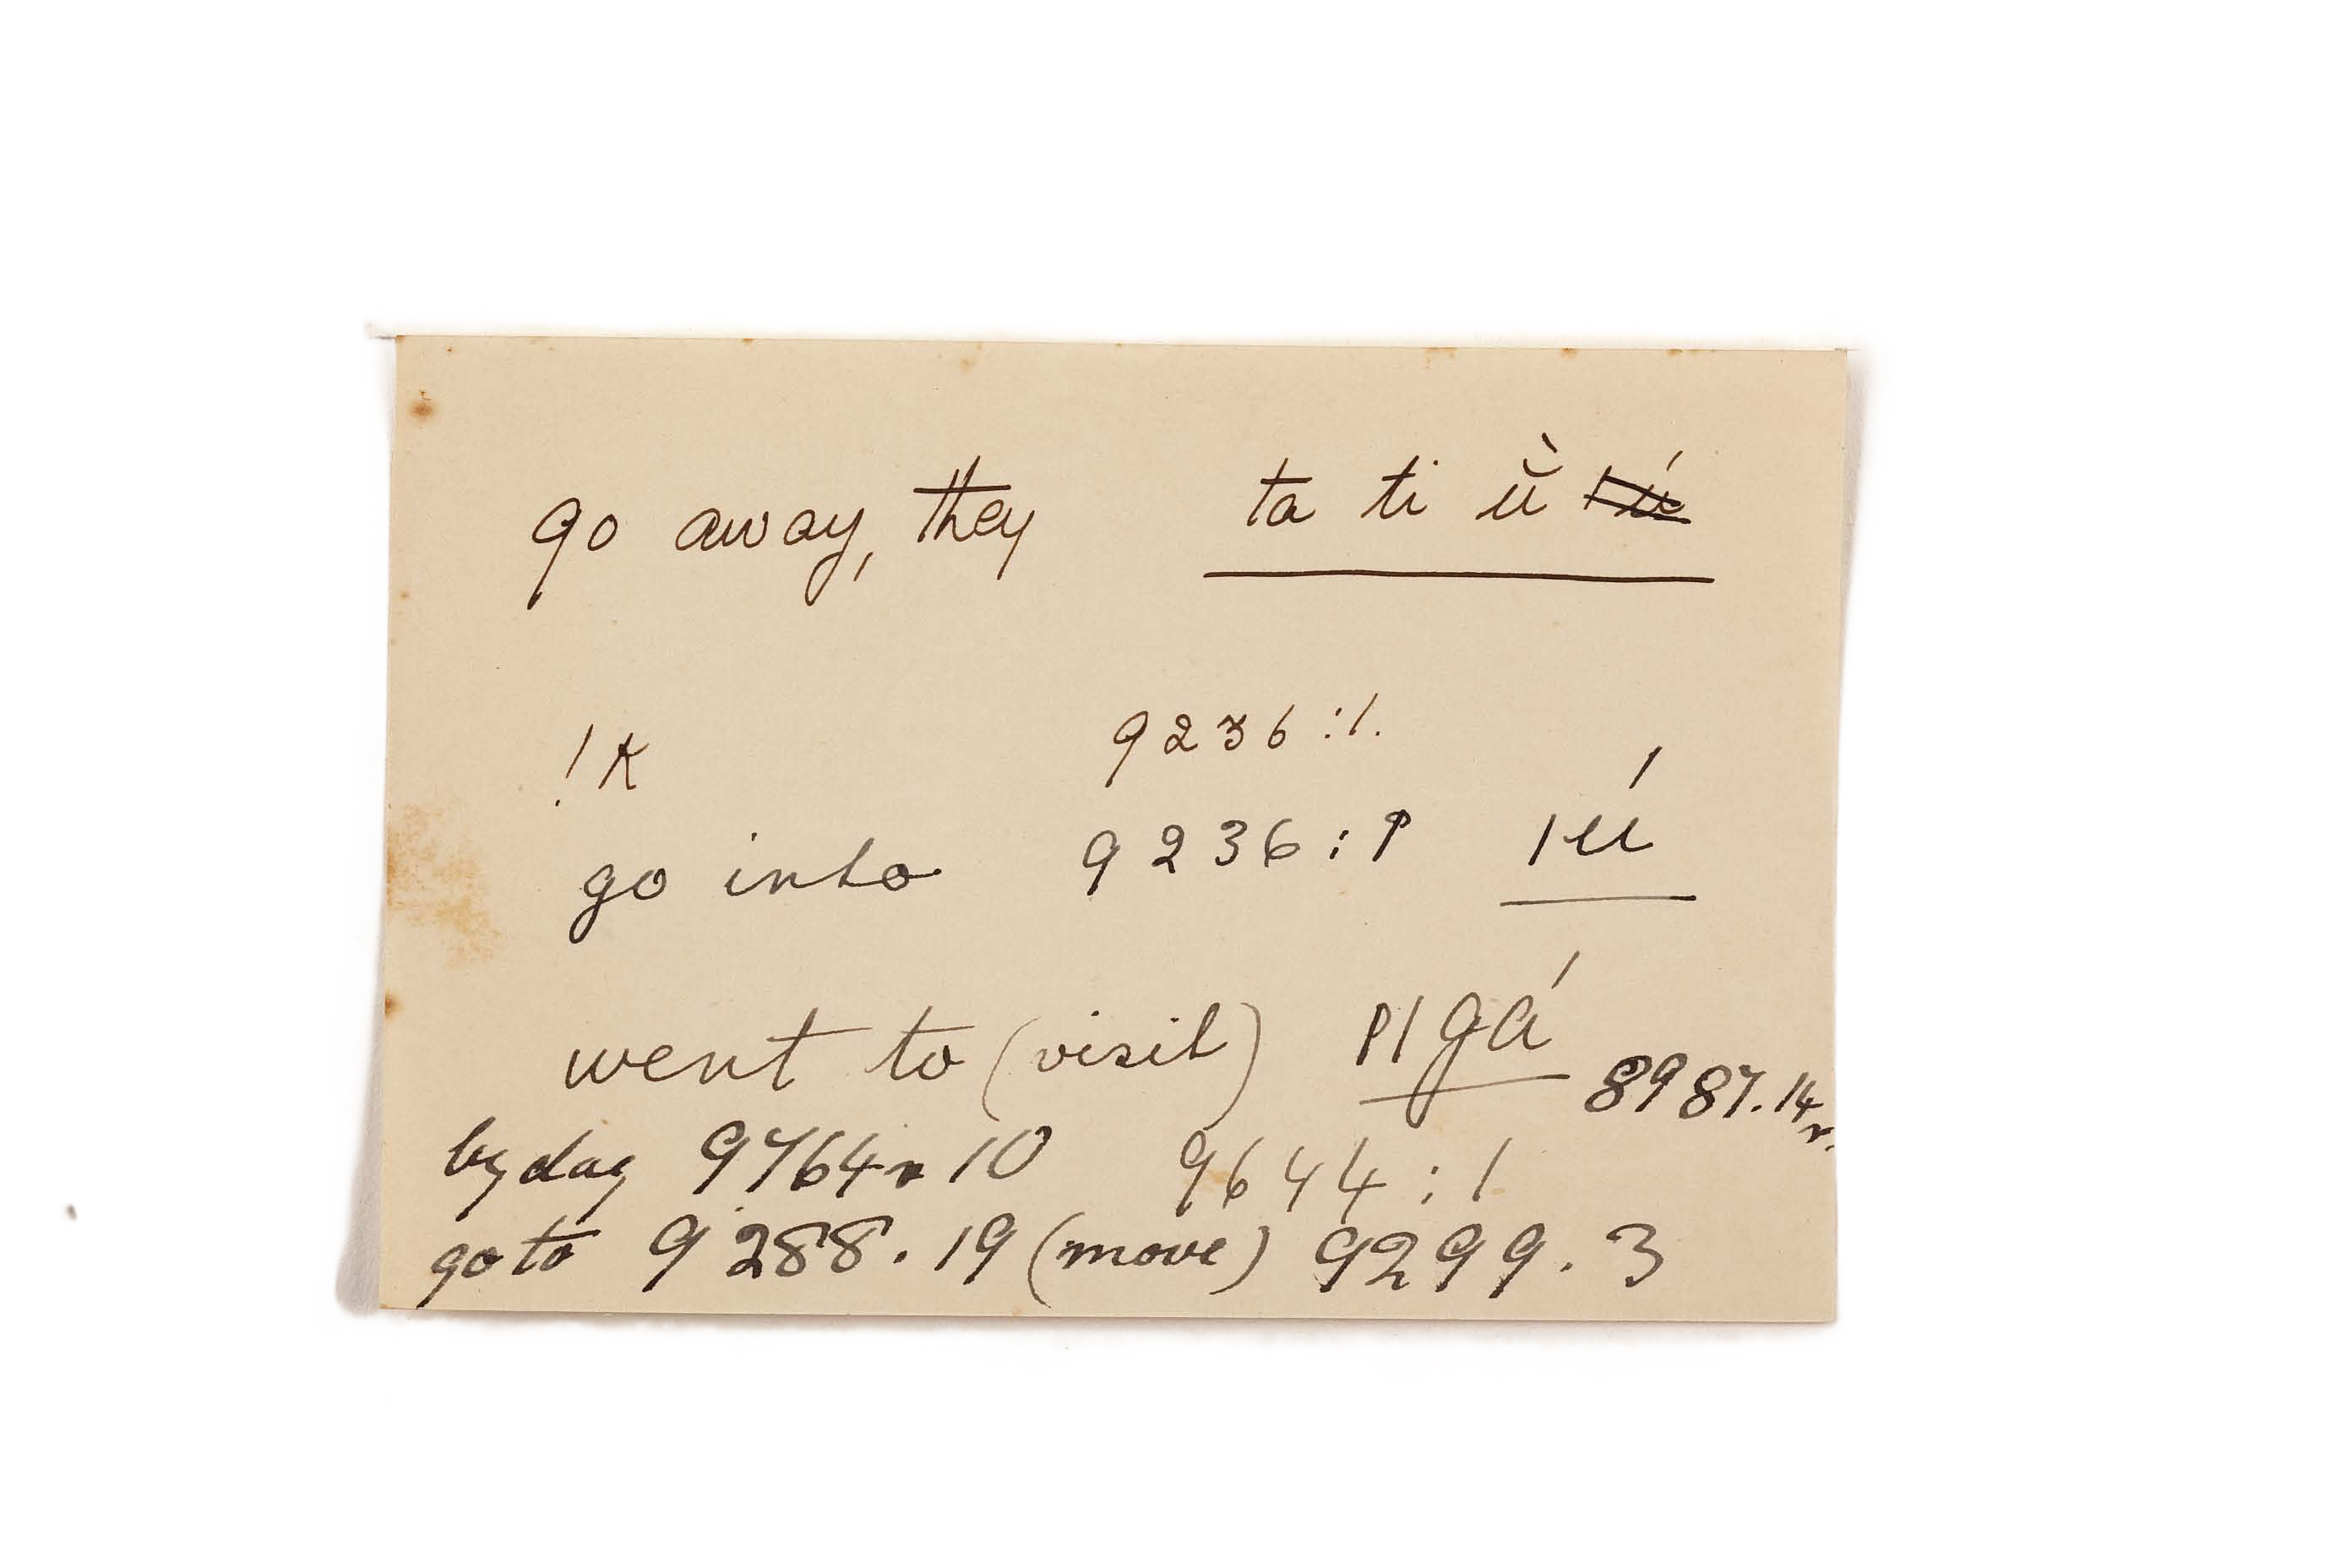 go away, they ta ti ŭ̀
! K 9236:1.
go into 9236:P |ú
went to (visit) P|gá 8987.14 r.
by day 9764.10 9644:1
go to 9288.19 (move) 9299.3